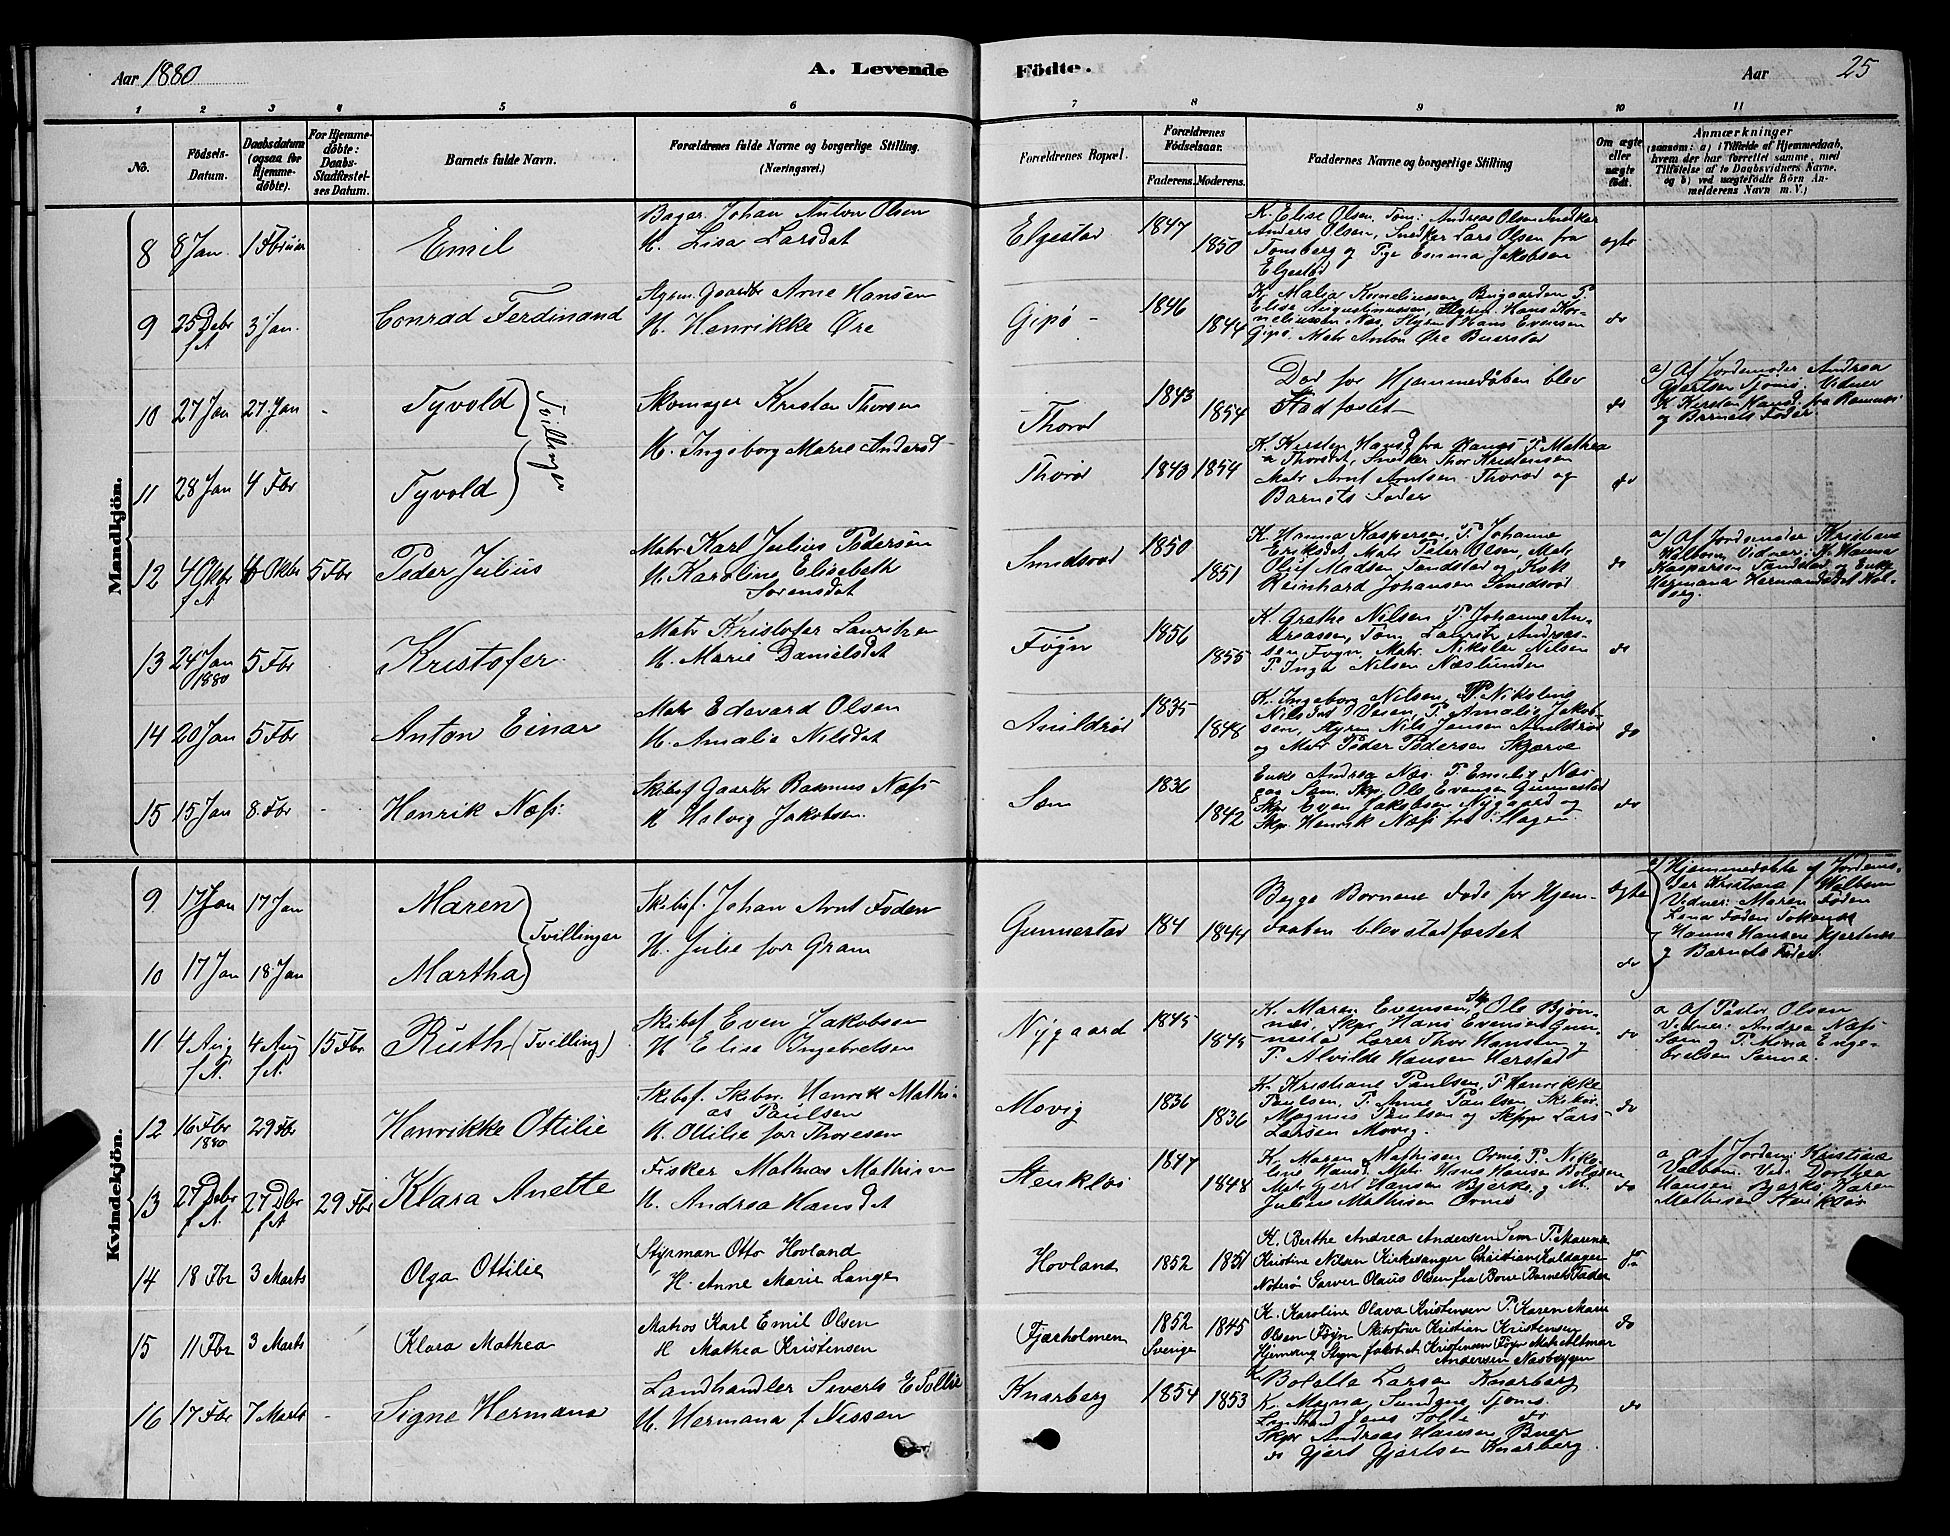 Aar 1880
A. Levende Födte.
Aar 25
1 2 3 4 5 6 7 8 9 10 11
No.
Födsels-Datum.
Daabsdatum (ogsaa for Hjemmedöbte).
For Hjemmedöbte: Daabs-Stadfæstelses Datum.
Barnets fulde Navn.
Forældrenes fulde Navne og borgerlige Stilling. (Næringsvei.)
Forældrenes Bopæl.
Forældrenes Födselsaar.
Faderens. Moderens.
Faddernes Navne og borgerlige Stilling
Om ægte eller uægte födt.
Anmærkninger
(saasom: a) i Tilfælde af Hjemmedaab, hvem der har forrettet samme, med Tilföielse af to Daabsvidners Navne, og b) ved uægtefödte Börn Anmelderens Navn m. V.)
Mandkjön.
8 8 Jan. 1 Februar Emil
Bager Johan Anton Olsen
H. Lisa Larsdat
Elgestad 1847 1850
K. Elise Olsen, Tøm: Andreas Olsen Snedker
Anders Olsen, Snedker Lars Olsen fra
Tønsberg og Pige Emma Jakobsen
Elgestad
ægte
9 25 Debr f.A. 3 Jan. Conrad Ferdinand
Styrm. Gaardbr Arne Hansen
H. Henrikke Øre
Gipø 1846 1844
K. Malia Korneliussen Bugaarden P.
Elise Augustinussen, Styrm. Hans Kor-
neliussen Næs, Styrm Hans Evensen
Gipø. Matr Anton Øre Buerstad
do
10 27 Jan 27 Jan - Tyvold
Tvillinger
Skomager Kristen Thorsen
H. Ingeborg Marie Andersd
Thorød 1843 1854
Død før Hjemmedøben blev
Stadfæstet
do
a) Af Jordemoder Andrea
Gjertsen Tjømø. Vidner
K Kirsten Hansd. fra Ramnæs
og Barnets Fader.
11 28 Jan 4 Fbr Tyvold
Thorød 1843 1854
K. Kirsten Hansd fra Ramnæs P. Mathea
Thorsdat, Snedker Thor Kristensen
Matr Arnt Arntsen Thorød og
Barnets Fader
do
12 4 Oktbr f.A. 6 Oktbr 5 Fbr Peder Julius
Matr Karl Julius Pedersen
H. Karoline Elisebeth
Sørensdat
Smidsrød 1850 1851
K. Hanna Kaspersen, P. Johanne
Eriksdat, Matr Peter Olsen, Matr
Oluf Madsen Sandstad og Kok
Reinhard Johansen Smidsrød
do
a) Af Jordemoder Kristiane
Valbom, Vidner: K. Hanna
Kaspersen Sundstad og Enke
Hermana Hermandsdat Hol-
berg.
13 24 Jan 1880 5 Fbr Kristofer
Matr Kristofer Lauritzen
H. Marie Danielsdat
Føgn 1856 1855
K. Grethe Nilsen P. Johanne An-
dreassen, Tøm Laurits Andreas-
sen Føgn, Matr. Nikolai Nilsen
P. Inga Nilsen Næslunden
do
14 20 Jan 5 Fbr Anton Einar
Matr Edevard Olsen
H. Amalie Nilsdat
Anildrød 1835 1848
K. Ingeborg Nilsen, P. Nikoline
Nilsdat Veien, P. Amalie Jakob-
sen, Styrm Nils Jensen Anildrød
og Matr Peder Pedersen Skjærve
do
15 15 Jan 8 Fbr - Henrik Næss.
Skibsf Gaardbr Rasmus Næss
H Helvig Jakobsen.
Sem 1836 1842
Enke Andrea Næs. P. Emilie Næs
paa Sem. Skp. Ole Evensen Gunnestad
Skpr Even Jakobsen Nygaard og
Skp. Henrik Næss fra Slagen
do
Kvindekjön.
9 17 Jan 17 Jan Maren
Tvillinger
Skibsf. Johan Arnt Foden
H. Julie før Gram
Gunnestad 184 1844
Begge Børnene døde før Hjem-
daaben blev stadfæstet
ægte
a) Hjemmedøbte af Jordemo-
der Kristiane f Walbom
Vidner: Maren Føden
Lena Føden
Hanna Hansen
g Barnets Fader.
10 17 Jan 18 Jan Martha
do
11 4 Aug f.A. 4 Aug f.A. 15 Fbr Ruth (Tvilling)
Skibsf Even Jakobsen
H Elise Ingebretsen
Nygaard 1845 1845
K. Maren Evensen, Skp Ole Bjørn-
næs, Skpr Hans Evensen Gun-
nestad Lærer Thor Hansen og
P. Alvilde Hansen Herstad
do
a Af Pastor Olsen
Vidner: Andrea Næss
Sem og P. Mina Enge-
bretsen Samme.
12 16 Fbr 1880 29 Fbr Henrikke Ottilie
Skibsf. Skiben. Henrik Mathi-
as Paulsen
H. Ottilie før Thoresen
Movig 1836 1836
K. Kristiane Paulsen, P Henrikke
Paulsen, P. Anne Paulsen Skibsr.
Magnus Paulsen og Skppr Lars
Larsen Movig.
do
13 27 Debr f.A. 27 Dbr f.A. 29 Fbr Klara Anette
Fisker Mathias Mathisen
H. Andrea Hansdat
Stenkløs 1847 1848
K. Maren Mathisen Ormø, P. Niko-
line Hansd, Matr. Hans Hansen Bolærne
Matr Gert Hansen Bjerkø og M.
Julius Mathisen Ormø
do
a af Jordemj: Kristiane
Valbom. Vid: Dorthea
Hansen Bjerkø Karen
Mathisen Stenkløs
14 18 Fbr 3 Marts Olga Ottilie
Styrman Otto Hovland
H. Anne Marie Lange
Hovland 1852 1851
K. Berthe Andrea Andersen Sem P. Maren
Kristine Nilsen Kirkesanger Christian Kaldager
Nøterø Garver Olaus Olsen fra Borre Barnets Fader
do
15 11 Fbr 3 Marts Klara Mathea
Matros Karl Emil Olsen
H Mathea Kristensen
Fjærholmen 1852 Sverige 1845
K. Karoline Olava Kristensen P. Karen Marie
Olsen Føyn Skibsfører Kristian Kristensen
Hjemseng Styrm Jakob A Kristensen Føyn Matr Altmar
Andersen Næsbyggen
do
16 17 Fbr 7 Marts - Signe Hermana
Landhandler Severts E Sollie
H. Hermana f Nissen
Knarberg 1854 1853
Bolette Larsen Knarberg
K. Magna Sundgne Tjømø.
Landhand Jens Solli do
Skpr Andreas Hansen Buer
do Gjert Gjertsen Knarberg.
do